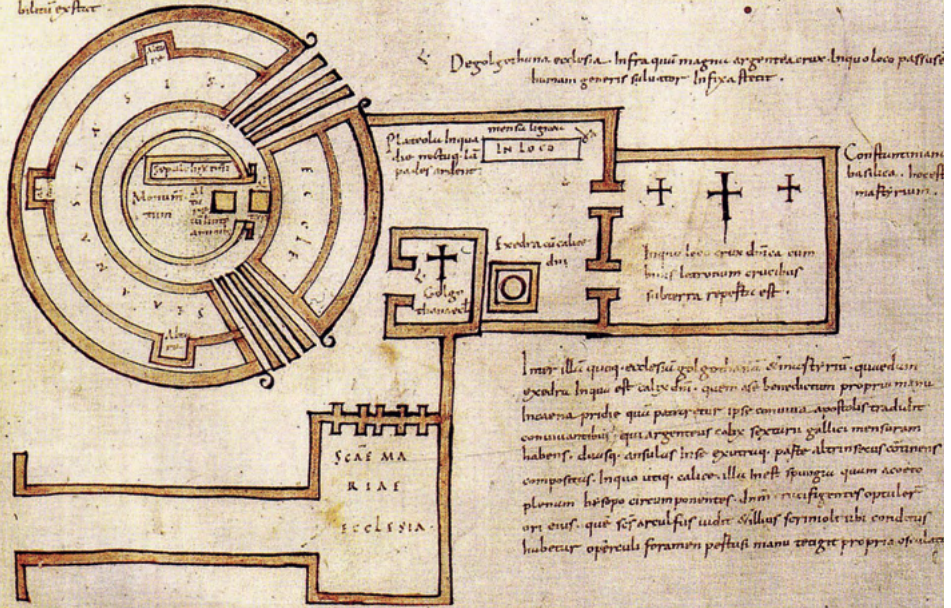 De golgothana ecclesia. Infra quā magna argentea crux. In quo loco passus e
humani generis salvator infixa stetit.
Plateola in qua
die noctuq; lā
pades ardent
mensa lignea
IN LOCO
Constantiniana
basilica. hoc est
martyrium.
Altare
Sepulchrum dñi
Monum
tum
ROTUNDA
ECCLE
SIA
Exedra cū calice
dñi
Golgo
thana eccl
In quo loco crux dñica cum
binis latronum crucibus
sub terra reposita est.
Inter illā quoq; ecclesiā golgothanā & martyriū. quaedam
exedra in qua est calix dñi. quem a se benedictum propria manu
in caena pridie quā pateretur ipse conviva apostolis tradidit
convivantibus; qui argenteus calix sextarii gallici mensuram
habens. duasq; ansulas in se ex utraq; parte altrinsecus continens
compositus. In quo utiq; calice illa inest spongia quam aceto
plenam hysopo circumponentes. dñm crucifigentes optuler
ori eius. quē scs arculfus vidit & illius scrinioli ubi conditus
habetur operculi foramen pertusi manu tetigit propria osculatus
SCAE MA
RIAE
ECCLESIA.